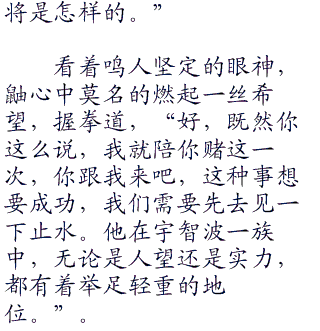 将是怎样的。”
看着鸣人坚定的眼神，
鼬心中莫名的燃起一丝希
望，握拳道，“好，既然你
这么说，我就陪你赌这一
次，你跟我来吧，这种事想
要成功，我们需要先去见一
下止水。他在宇智波一族
中，无论是人望还是实力，
都有着举足轻重的地
位。”。